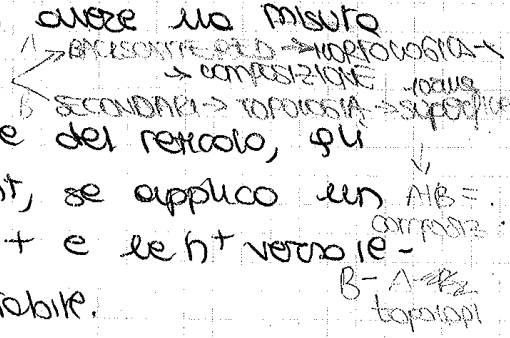 avere una misura
A → BACKSCATTERED → MORFOLOGICA +
→ COMPOSIZIONE
B SECONDARI → TOPOLOGIA → superficie
e del reticolo, gli
↓
nt, se applico un A+B = .
composiz.
+ e le h+ verso le -
B - A =
topologi
abile.